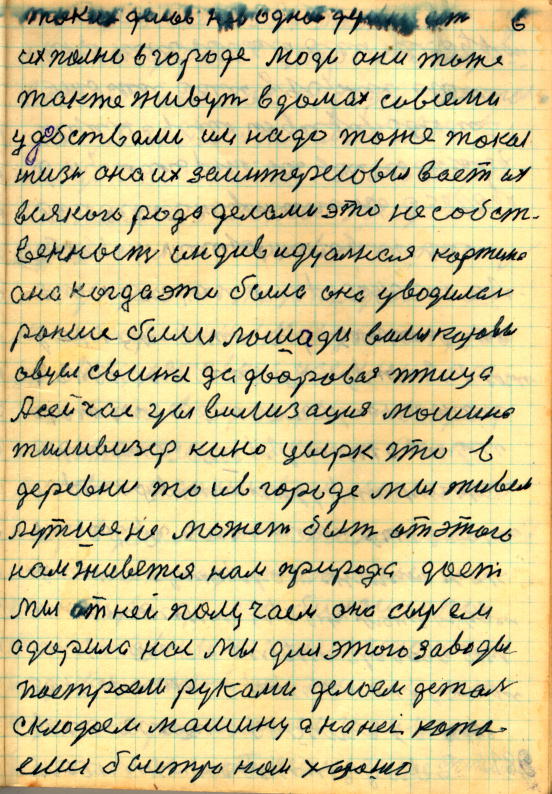 таких делов не одна 6
их полно в городе моди они тоже
также живут в домах совсеми
удобствами им надо тоже такая
жизн она их заинтересовывает их
всякого рода делами это не собст-
венность индивидуалная картина
она когда это была она уводилас
ранше были лошади валы каровы
овцы свинья да дваровая птица
Асейчас цывилизация машина
тиливизер кино цырк что в
деревни то и в городе мы живем
лутшея не может быт от этого
нам живется нам природа дает
мы от ней получаем она сырем
адарила нас мы для этого заводы
построели руками делаем детал
складоем машину а на ней ката-
емся быстро нам харашо